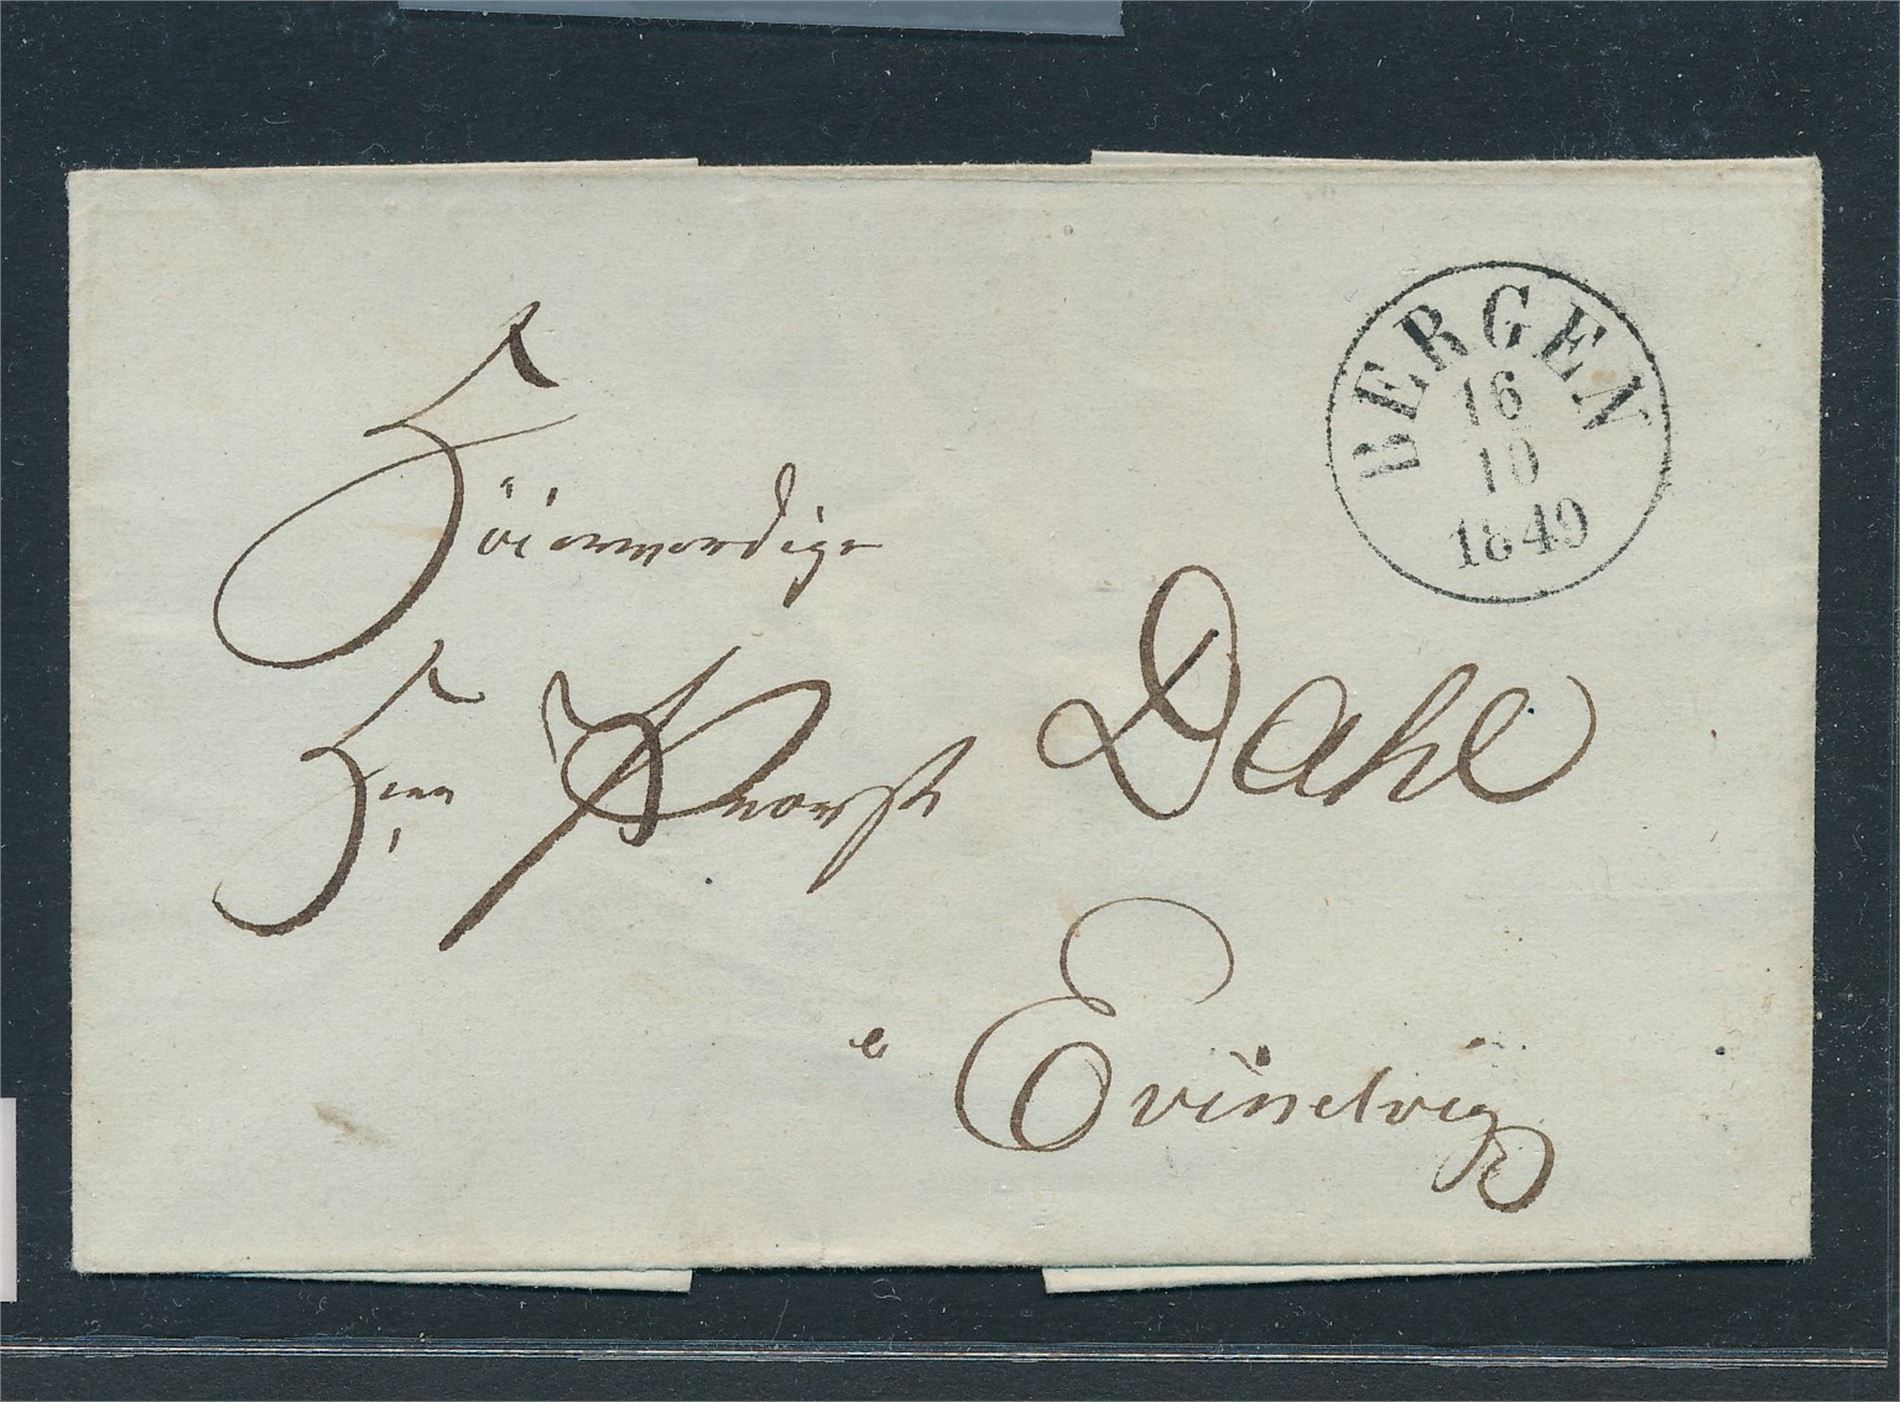 BERGEN
16
10
1849
Höiærværdige
Herr Provst Dahl
i Evindvig